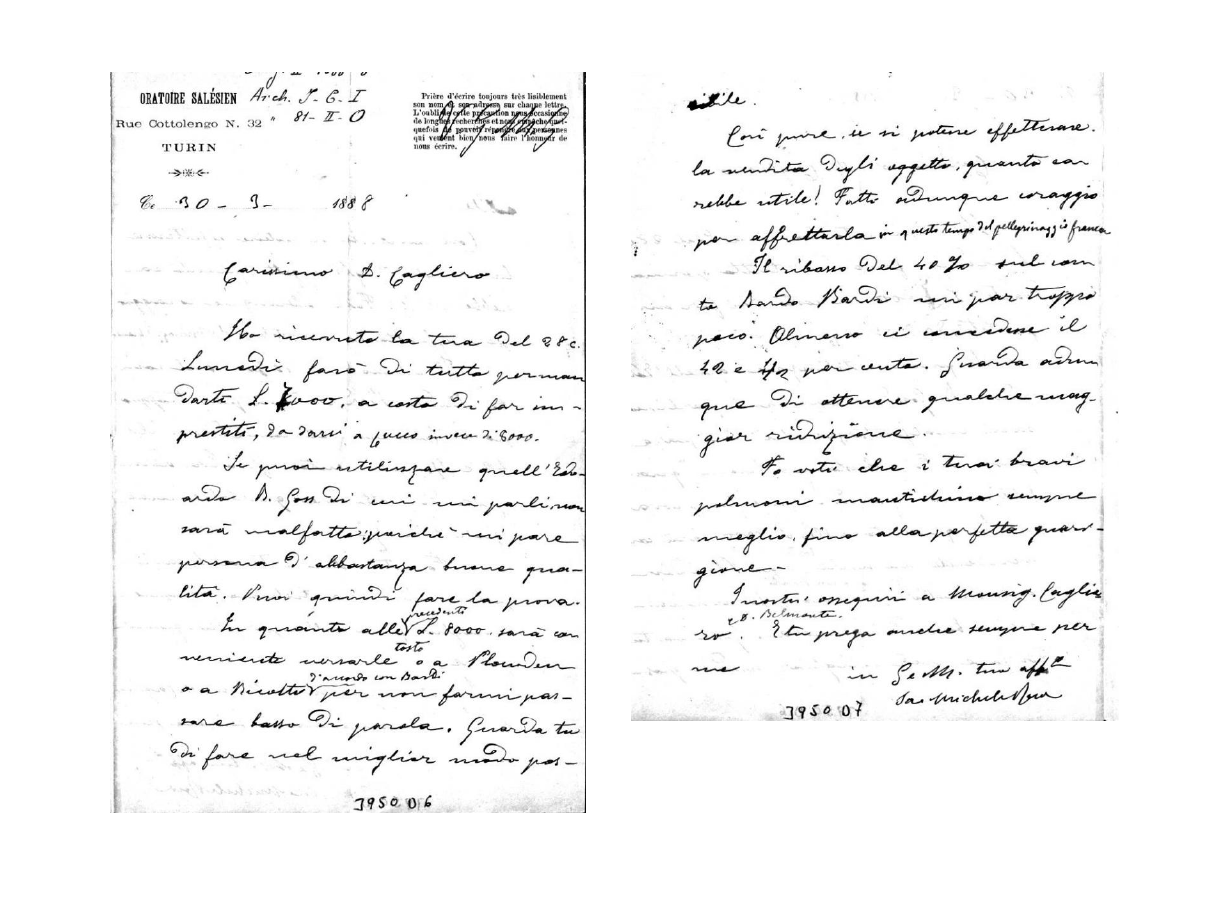 ORATOIRE SALÉSIEN
Arch. S-G-I
Rue Cottolengo N. 32
" 81-II-O
TURIN
Prière d'écrire toujours très lisiblement
son nom et son adresse sur chaque lettre.
L'oubli de cette précaution nous occasionne
de longues recherches et nous empêche quel-
quefois de pouvoir répondre aux personnes
qui veulent bien nous faire l'honneur de
nous écrire.
30 - 3 - 1888
Carissimo D. Cagliero
Ho ricevuto la tua del 28 c.
Lunedì farò di tutto per man
darti L. 7000, a costo di far im-
prestiti, da darsi a invece di 8000.
Se puoi utilizzare quell'Edo-
ardo di cui mi parli, non
sarà malfatto; poichè mi pare
persona d'abbastanza buone qua-
lità. Puoi quindi fare la prova.
In quanto alle precedenti L. 8000 sarà con
veniente versarle tosto o a Plowden
o a Bicotti d'accordo con Bardi per non farmi pas-
sare basso di parola. Guarda tu
di fare nel miglior modo pos-
3950 D6
sibile.
Così pure se si potesse effettuare
la vendita degli oggetto, quanto sa
rebbe utile! Fatti adunque coraggio
per affrettarla in questo tempo del pellegrinaggio
Il ribasso del 40 % sul con
to Bardi mi par troppo
poco. Almeno ci concedesse il
42 e 1/2 per cento. Guarda adun
que di ottenere qualche mag-
gior riduzione.
Fo voti che i tuoi bravi
polmoni mantichino sempre
meglio, fino alla perfetta guari-
gione.
I nostri ossequii a Monsig. Caglie
ro e D. Belmonte. E tu prega anche sempre per
me
in G. e M. tuo aff.mo
Sac. Michele Rua
3950 D7